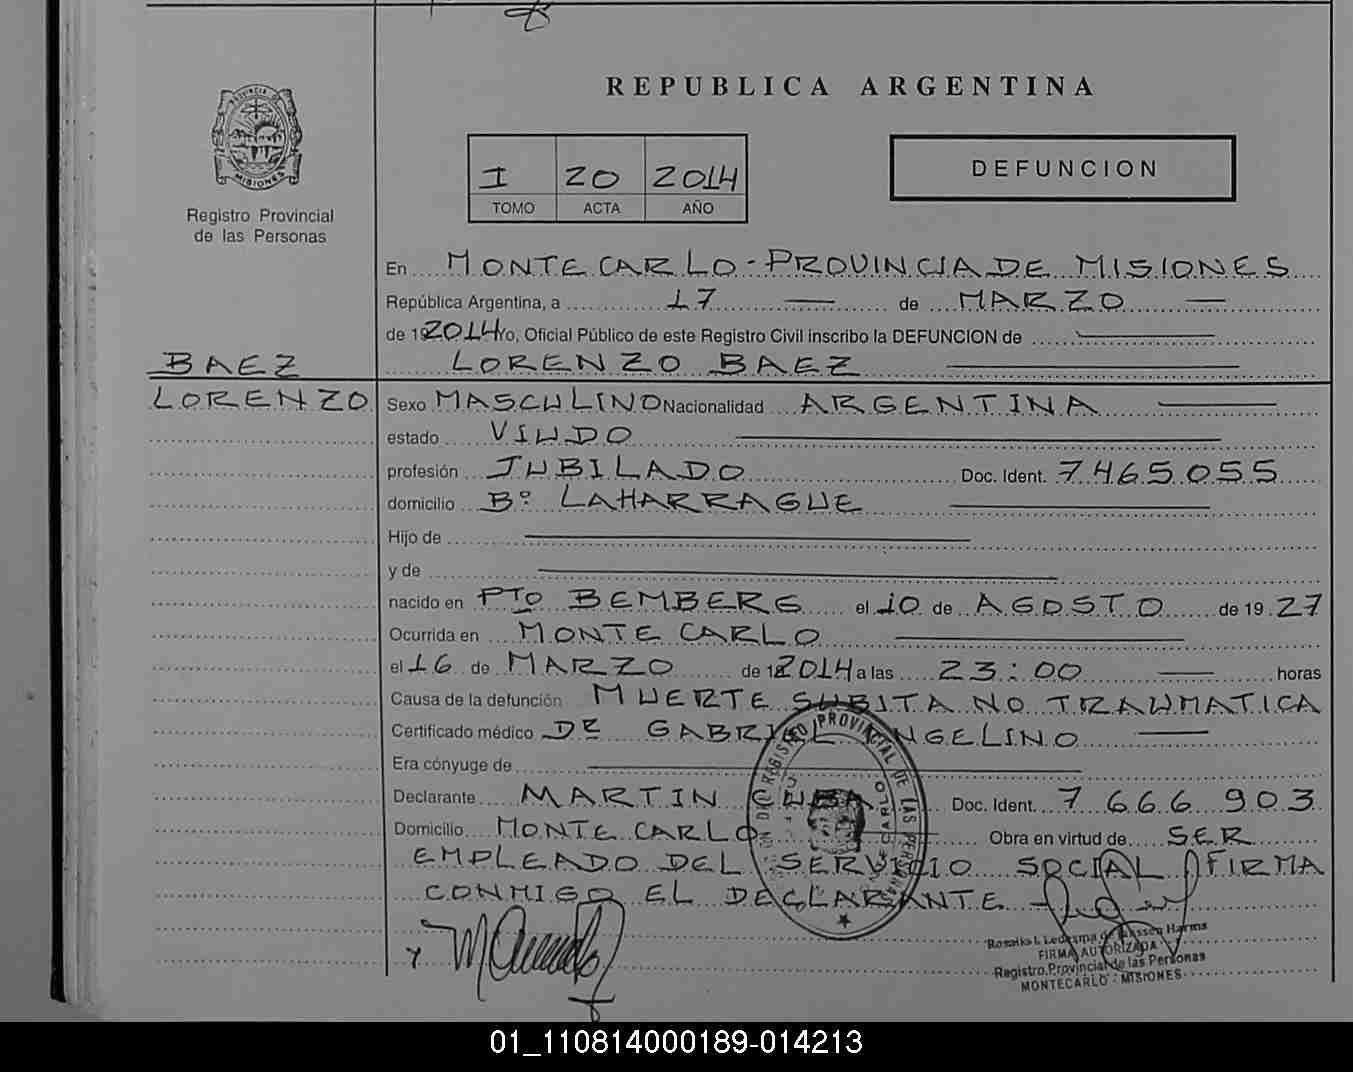 REPUBLICA ARGENTINA
PROVINCIA DE
MISIONES
Registro Provincial
de las Personas
I 20 2014
TOMO ACTA AÑO
DEFUNCION
En MONTECARLO - PROVINCIA DE MISIONES
República Argentina, a 17 de MARZO
de 19 2014 Yo, Oficial Público de este Registro Civil inscribo la DEFUNCION de
LORENZO BAEZ
BAEZ
LORENZO
Sexo MASCULINO Nacionalidad ARGENTINA
estado VIUDO
profesión JUBILADO Doc. Ident. 7465055
domicilio Bº LAHARRAGUE
Hijo de
y de
nacido en PTO BEMBERG el 10 de AGOSTO de 19 27
Ocurrida en MONTECARLO
el 16 de MARZO de 19 2014 a las 23:00 horas
Causa de la defunción MUERTE SUBITA NO TRAUMATICA
Certificado médico DR GABRIEL ANGELINO
Era cónyuge de
Declarante MARTIN Doc. Ident. 7 666 903
Domicilio MONTECARLO Obra en virtud de SER
EMPLEADO DEL SERVICIO SOCIAL FIRMA
CONMIGO EL DECLARANTE
REGISTRO PROVINCIAL DE LAS PERSONAS
FIRMA AUTORIZADA
Registro Provincial de las Personas
MONTECARLO - MISIONES
01_110814000189-014213